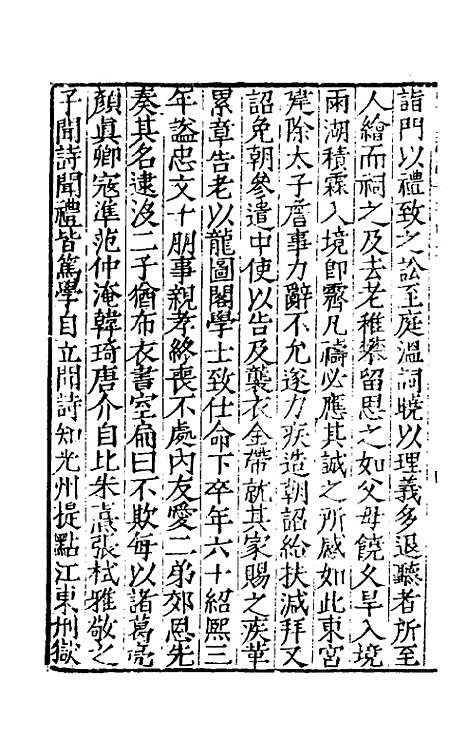 詣門以禮致之訟至庭溫詞曉以理義多退聽者所至
人繪而祠之及去老稚攀留思之如父母饒久旱入境
雨湖積霖入境即霽凡禱必應其誠之所感如此東宮
建除太子詹事力辭不允遂力疾造朝詔給扶減拜又
詔免朝參遣中使以告及襲衣金帶就其家賜之疾革
累章告老以龍圖閣學士致仕命下卒年六十紹熙三
年謚忠文十朋事親孝終喪不處內友愛二弟郊恩先
奏其名逮没二子猶布衣書室扁曰不欺每以諸葛亮
顏眞卿寇準范仲淹韓琦唐介自比朱熹張栻雅敬之
子聞詩聞禮皆篤學自立聞詩知光州提點江東刑獄